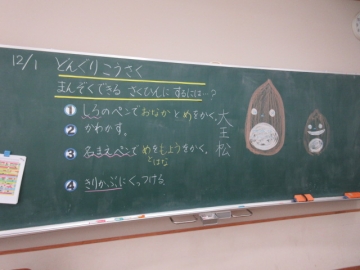 12/1 どんぐりこうさく
まんぞくできる さくひんに するには…?
① しろのペンでおなかとめをかく。
② かわかす。
③ 名まえペンでめをもようをかく。
とはな
④ きりかぶにくっつける
大王松